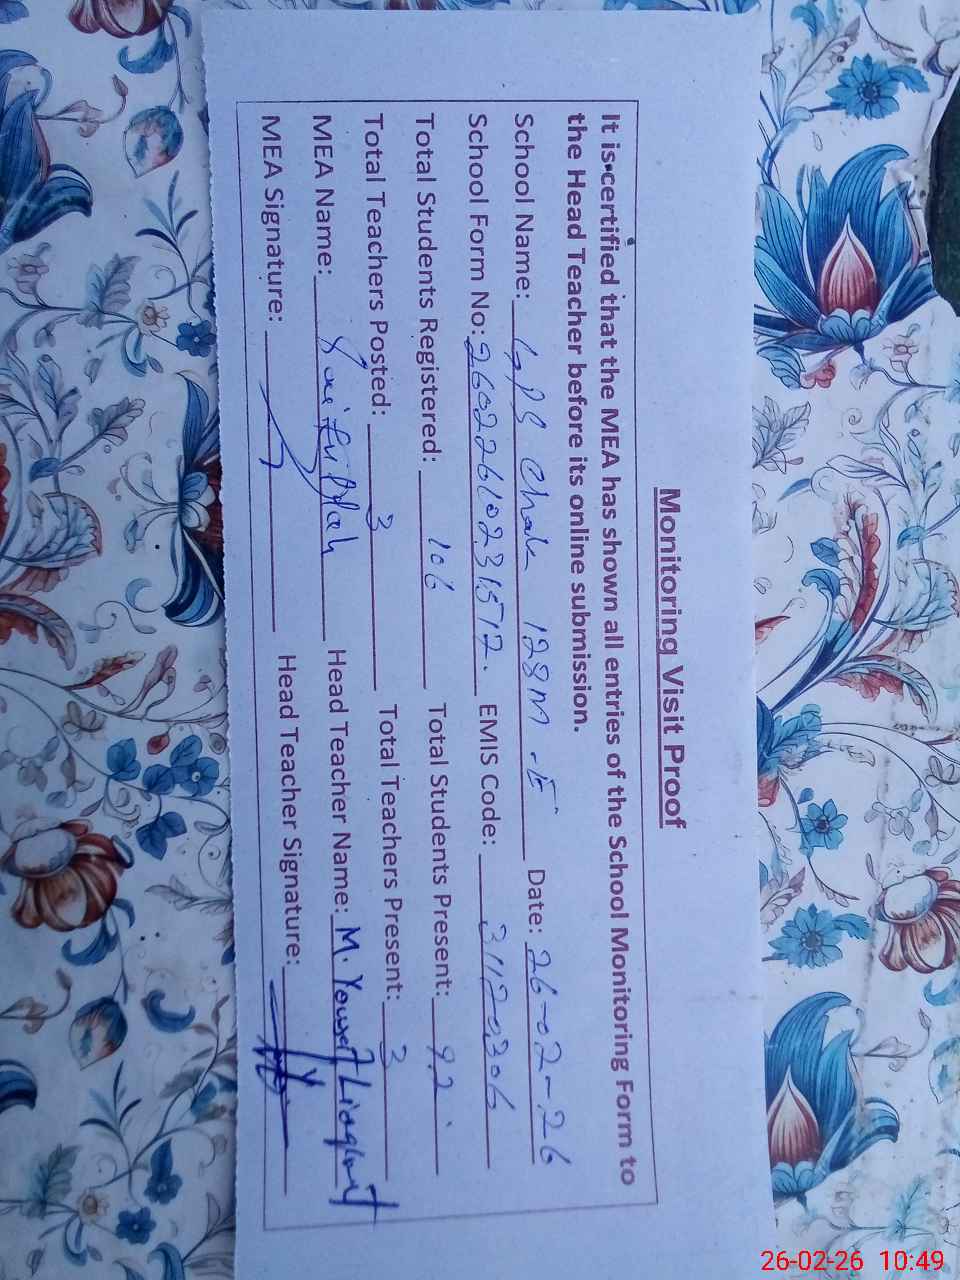 Monitoring Visit Proof
It is certified that the MEA has shown all entries of the School Monitoring Form to
the Head Teacher before its online submission.
School Name: GPS Chak 128M.E Date: 26-02-26
School Form No: 26022610231512. EMIS Code: 31120306
Total Students Registered: 106 Total Students Present: 92
Total Teachers Posted: 3 Total Teachers Present: 3
MEA Name: Saif ullah Head Teacher Name: M. Yousaf Liaqat
MEA Signature: Head Teacher Signature:
26-02-26 10:49